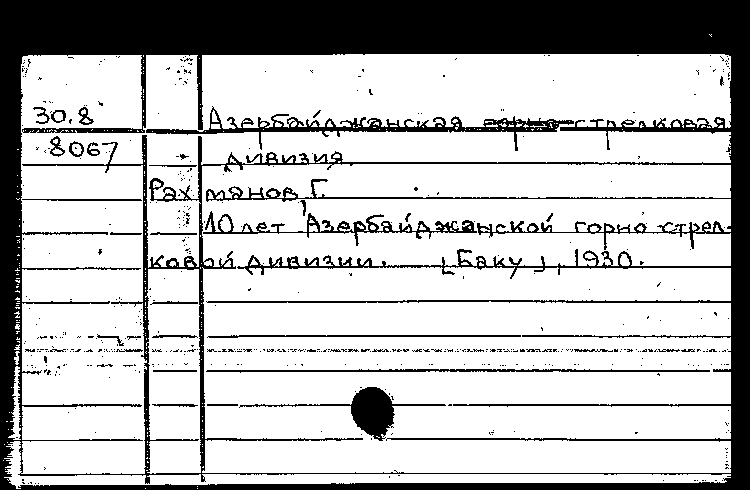 30.8 Азербайджанская горно-стрелковая
8067 дивизия.
Рахманов, Г.
10 лет Азербайджанской горно стрел-
ковой дивизии. [Баку], 1930.